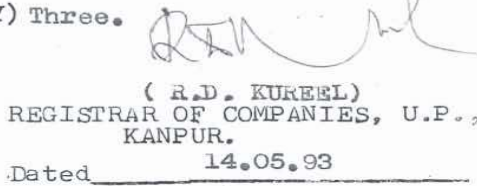 ) Three.
( R.D. KUREEL)
REGISTRAR OF COMPANIES, U.P.,
KANPUR.
Dated 14.05.93